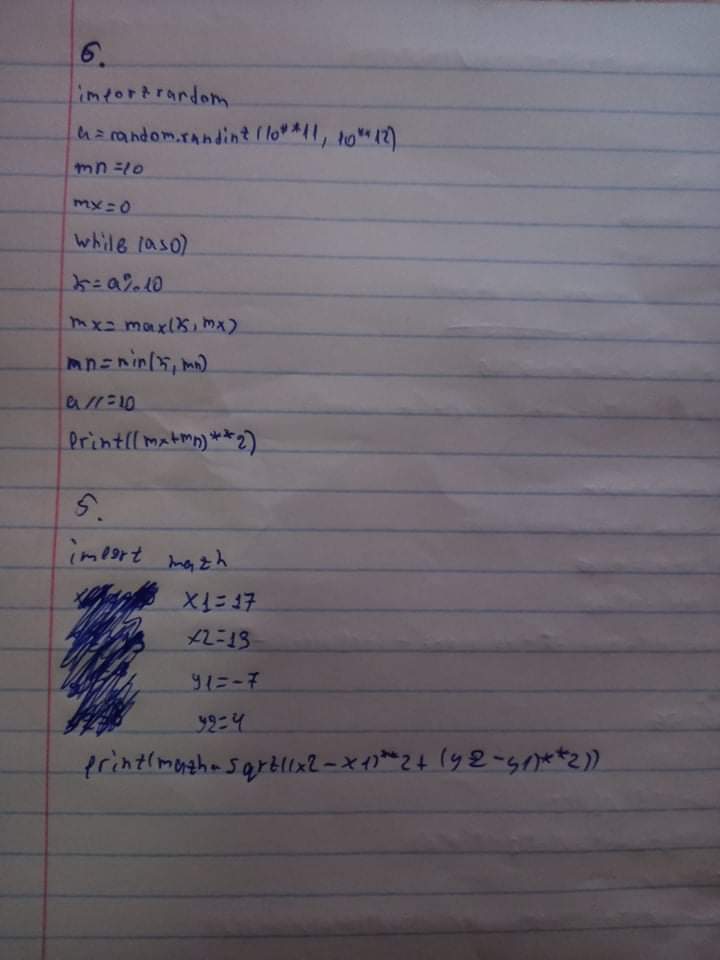 6.
import random
a=random.randint(10**11, 10**12)
mn=10
mx=0
while (a>0)
x=a%10
mx=max(x,mx)
mn=min(x,mn)
a//=10
print((mx+mn)**2)
5.
import math
x1=17
x2=13
y1=-7
y2=4
print(math.sqrt((x2-x1)**2+(y2-y1)**2))